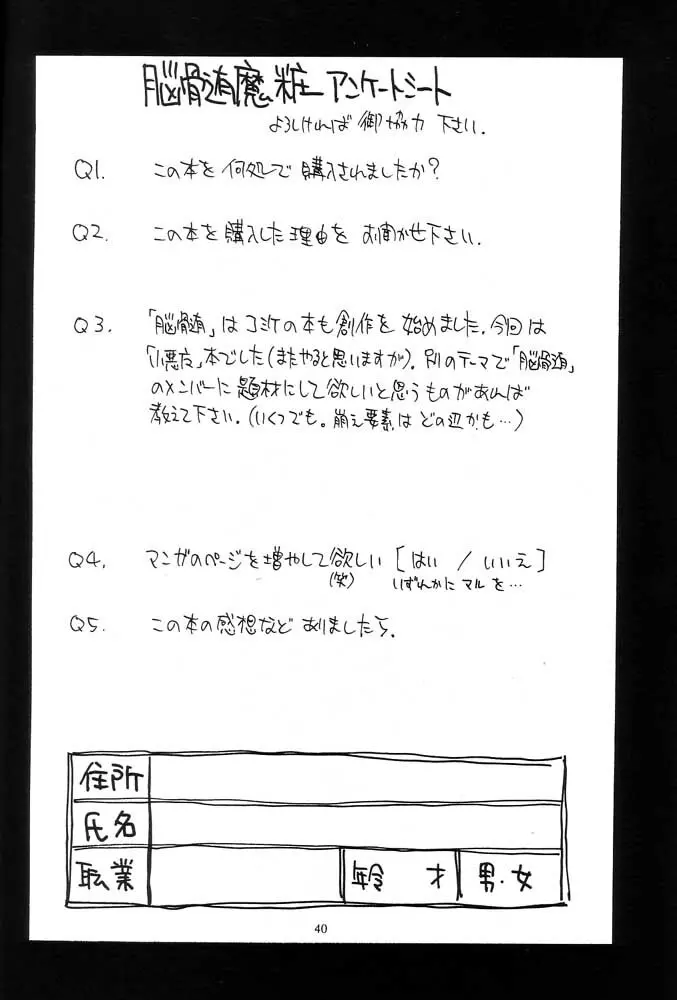 脳骨髄魔粧 アンケートシート
よろしければ 御協力 下さい.
Q1. この本を何処で購入されましたか?
Q2. この本を購入した理由をお聞かせ下さい.
Q3. 「脳骨髄」はコミケの本も創作を始めました. 今回は
「小悪魔」本でした(またやると思いますが). 別のテーマで「脳骨髄」
のメンバーに題材にして欲しいと思うものがあれば
教えて下さい. (いくつでも。萌え要素はどの辺かも…)
Q4. マンガのページを増やして欲しい [はい / いいえ]
(笑) いずれかにマルを…
Q5. この本の感想などありましたら.
住所
氏名
職業 年令 才 男・女
40